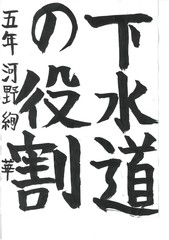 下水道
の役割
五年 河野絢華